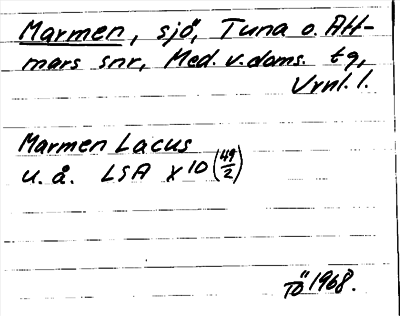 Marmen, sjö, Tuna o. Att-
mars snr, Med. v. doms. tg,
Vrnl. l.
Marmen Lacus
u. å. LSA X 10 (49/2)
TÖ 1968.